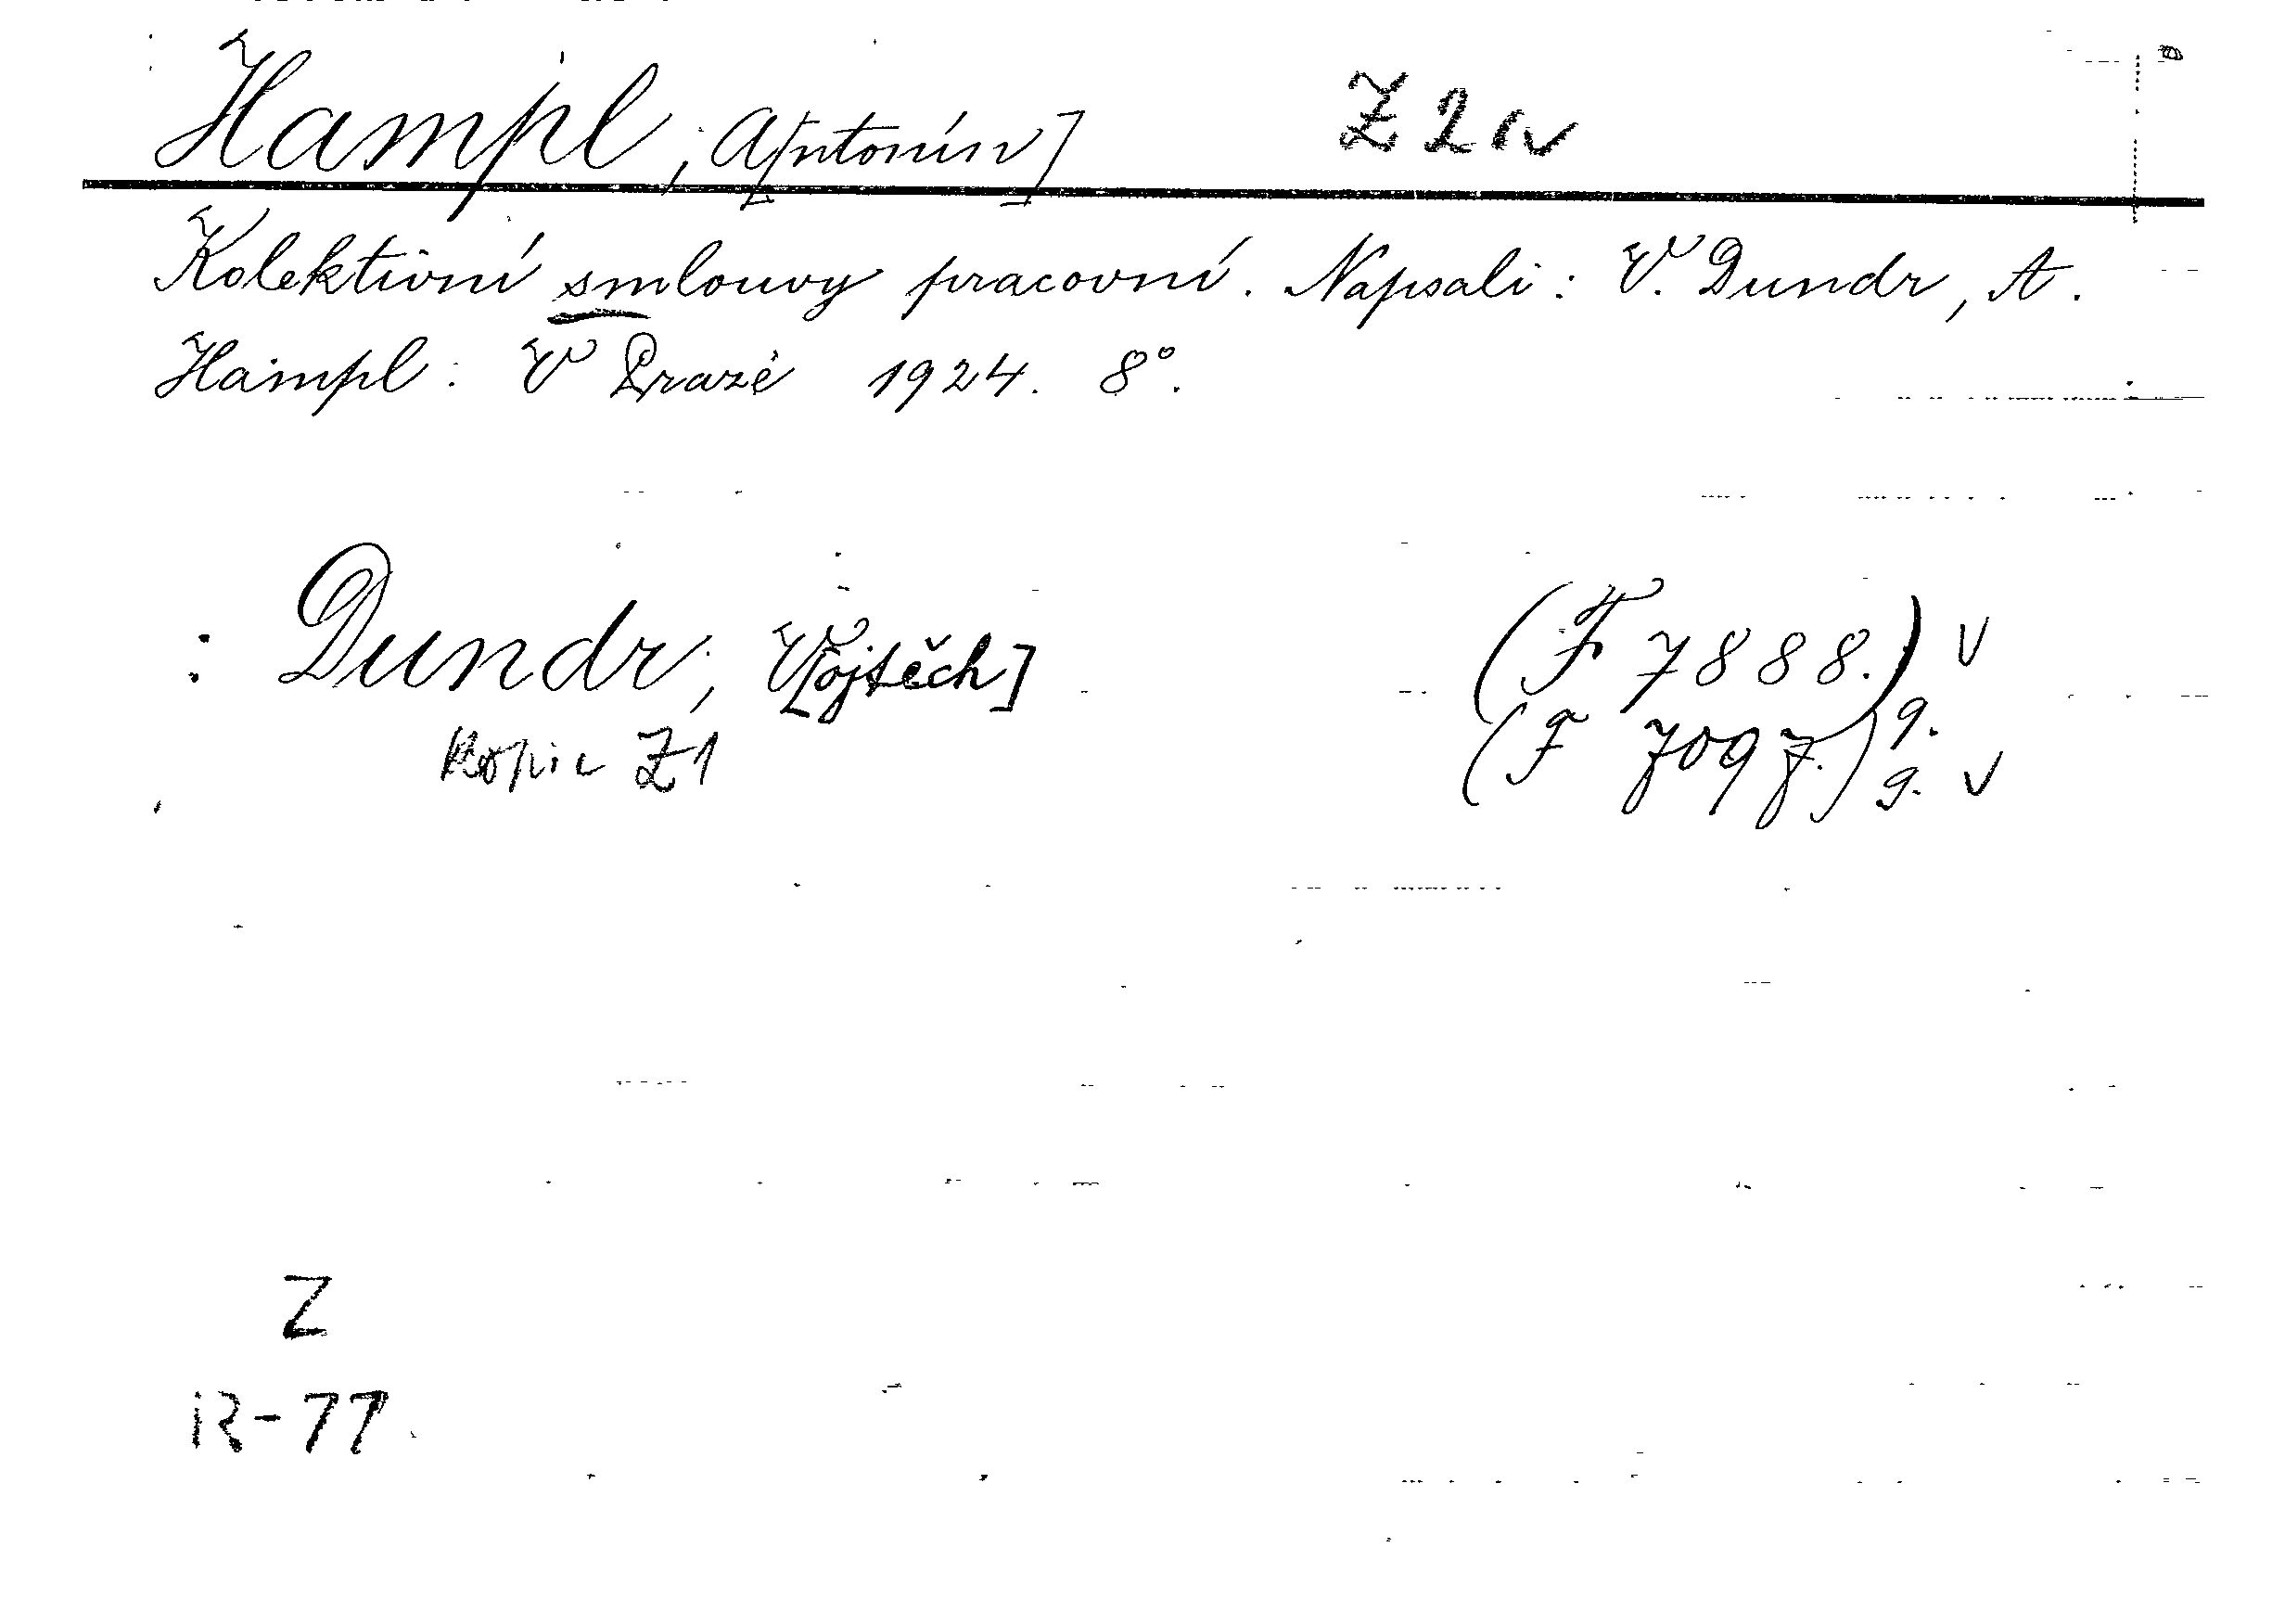 Hampl, A[ntonín] Z 2 iv
Kolektivní smlouvy pracovní. Napsali: V. Dundr, A.
Hampl: V Praze 1924. 8°.
: Dundr, V[ojtěch] (F 7888.) v
g.
Kopie Z1 (F 7097.) g. v
Z
12-77